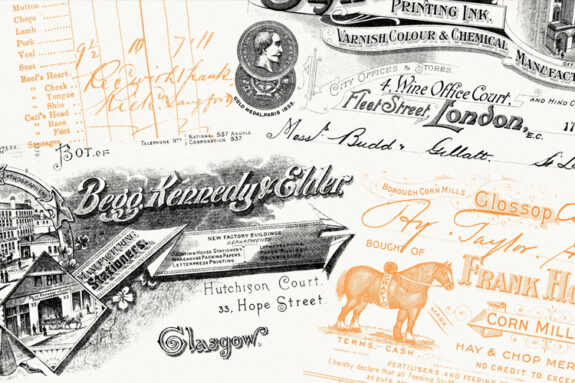 Mutton
Chops
Lamb
Pork
Veal
Suet
Beef's Heart
" Cheek
" Tongue
" Shin
Calf's Head
" Race
" Feet
Sausages
9½ 10 7/11
GOLD MEDAL, PARIS 1855.
TELEPHONE Nos NATIONAL 937 ARGYLE.
CORPORATION 937
PRINTING INK,
VARNISH, COLOUR & CHEMICAL
MANUFACT
CITY OFFICES & STORES.
4, Wine Office Court,
Fleet Street, London, E.C.
AND HIND C
17
Messrs Budd & Gillatt.
BOT. OF
LITHOGRAPHERS
Begg, Kennedy & Elder
MANUFACTURING
Stationers.
NEW FACTORY BUILDINGS
DEPARTMENTS
COUNTING HOUSE STATIONERY
WAREHOUSE PACKING PAPERS
LETTERPRESS PRINTING
Hutchison Court.
33, Hope Street.
Glasgow.
BOROUGH CORN MILLS
Glossop,
Hy. Taylor
BOUGHT OF
FRANK HO
CORN MILL
TRADE
MARK
HAY & CHOP MER
TERMS, CASH
NO CREDIT TO EXCEE
FERTILISERS AND FEEDING
I hereby declare that all Feeding Stu
as pure